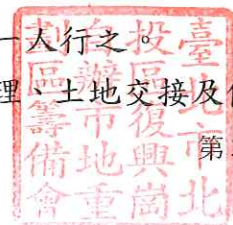 一人行之。
理、土地交接及
第
臺北市北
投區復興崗
自辦市地重
劃區籌備會